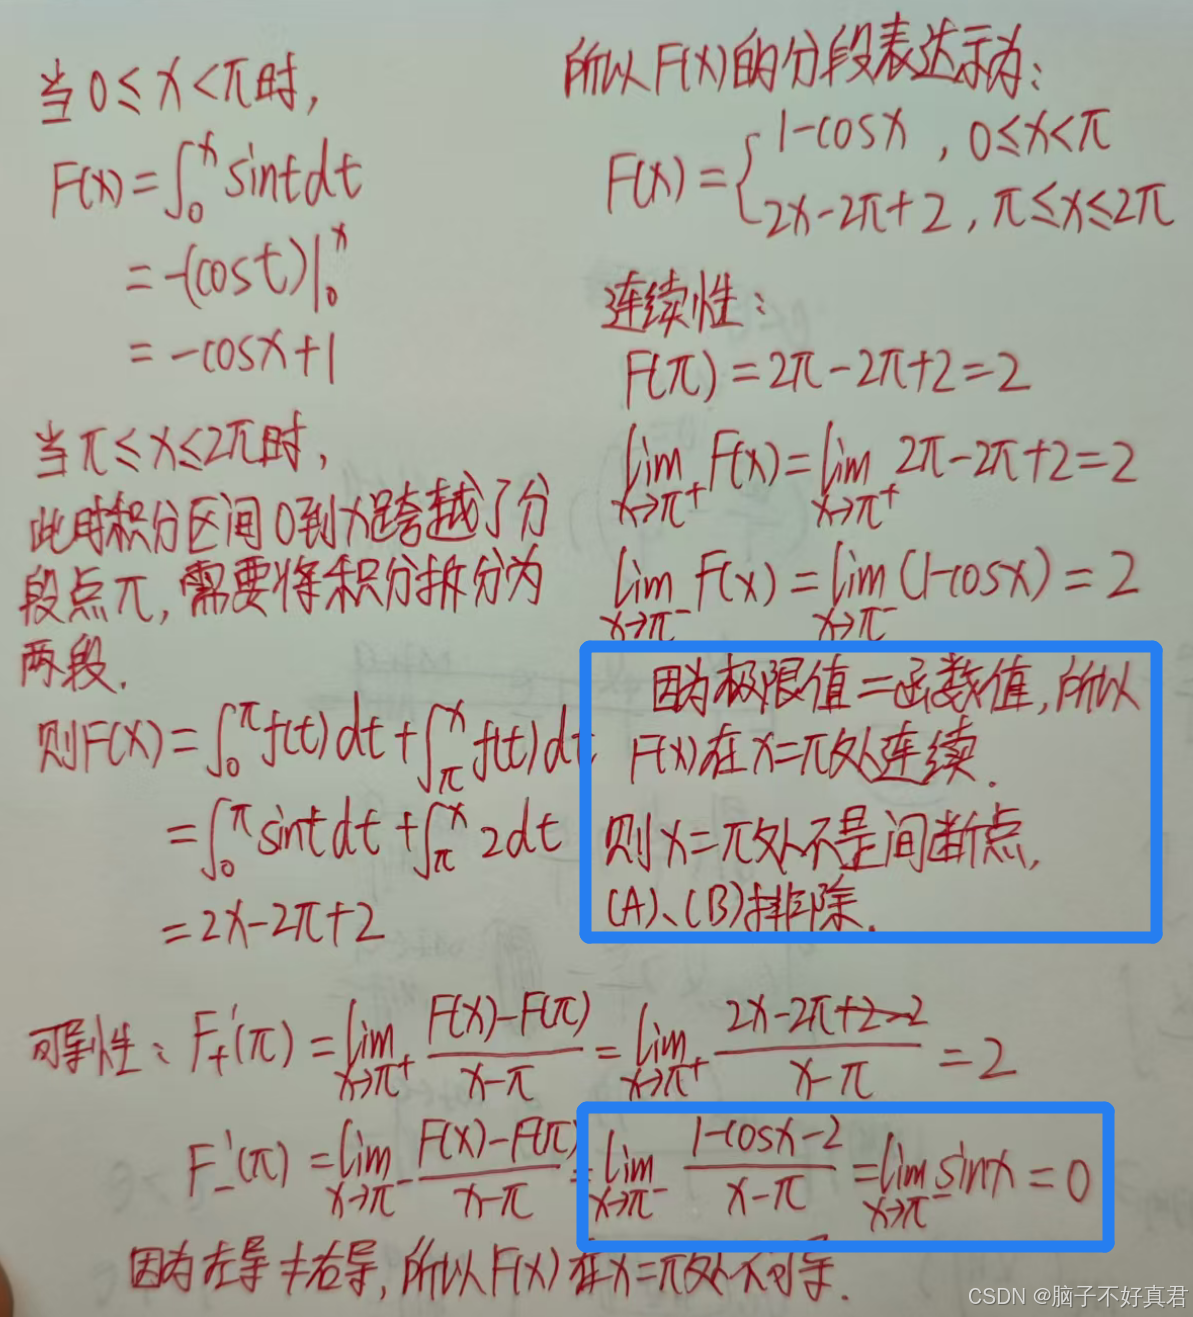 当0≤x<π时,
F(x)=∫₀ˣsintdt
=-(cost)|₀ˣ
=-cosx+1
当π≤x≤2π时,
此时积分区间0到x跨越了分
段点π,需要将积分拆分为
两段.
则F(x)=∫₀^π f(t)dt+∫_π^x f(t)dt
=∫₀^π sintdt+∫_π^x 2dt
=2x-2π+2
所以F(x)的分段表达示为:
F(x)={1-cosx, 0≤x<π
2x-2π+2, π≤x≤2π
连续性:
F(π)=2π-2π+2=2
lim_{x→π⁺} F(x)=lim_{x→π⁺} 2π-2π+2=2
lim_{x→π⁻} F(x)=lim_{x→π⁻} (1-cosx)=2
因为极限值=函数值,所以
F(x)在x=π处连续.
则x=π处不是间断点,
(A)、(B)排除.
可导性: F₊'(π)=lim_{x→π⁺} (F(x)-F(π))/(x-π)=lim_{x→π⁺} (2x-2π+2-2)/(x-π)=2
F₋'(π)=lim_{x→π⁻} (F(x)-F(π))/(x-π)=lim_{x→π⁻} (1-cosx-2)/(x-π)=lim_{x→π⁻} sinx=0
因为左导≠右导,所以F(x)在x=π处不可导.
CSDN @脑子不好真君